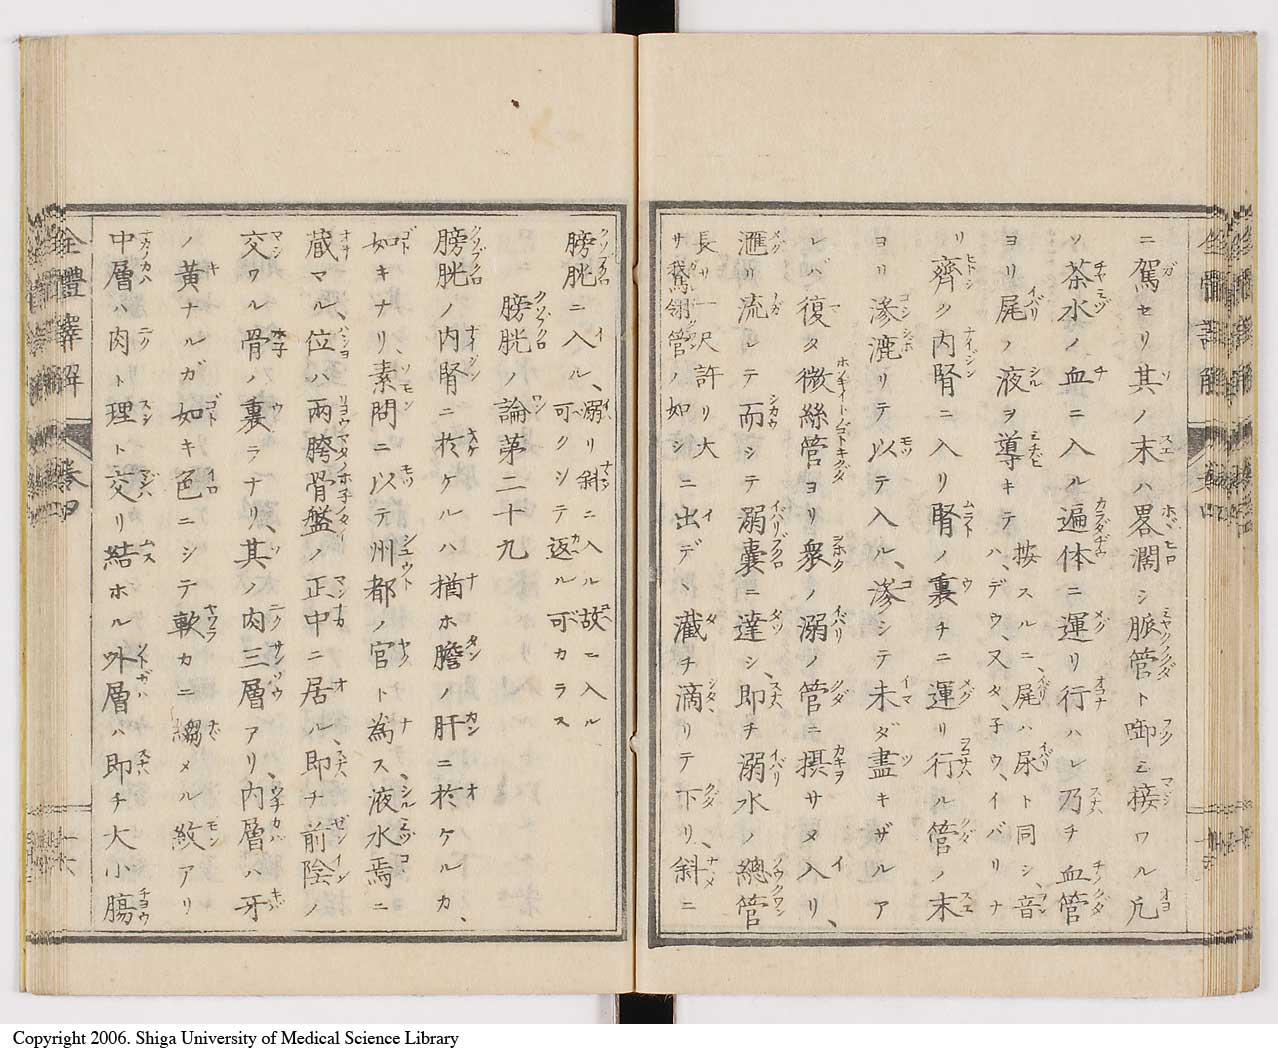 ニ駕セリ其ノ末ハ畧濶シ脈管ト啣ミ接ワル凡
ソ茶水ノ血ニ入ル遍体ニ運リ行ハレ乃チ血管
ヨリ尾ノ液ヲ導キテ按スルニ、尾ハ尿ト同シ、音
ハ、デウ、又タ、子ウ、イバリナ
リ齊ク内腎ニ入リ腎ノ裏チニ運リ行ル管ノ末
ヨリ滲漉リテ以テ入ル、滲シテ未ダ盡キザルア
レバ復タ微絲管ヨリ衆ノ溺ノ管ニ摂サタ入リ、
滙リ流レテ而シテ溺囊ニ達シ、即チ溺水ノ總管
長サ一尺許リ大
サ鵞翎管ノ如シニ出デ、瀐チ滴リテ下リ、斜ニ
膀胱ニ入ル、溺リ斜ニ入ル故ニ入ル
可クシテ返ル可カラス
膀胱ノ論第二十九
膀胱ノ内腎ニ於ケルハ猶ホ膽ノ肝ニ於ケルカ、
如キナリ、素問ニ以テ州都ノ官ト為ス、液水焉ニ
蔵マル、位ハ兩胯骨盤ノ正中ニ居ル、即チ前陰ノ
交ワル骨ノ裏ラナリ、其ノ肉三層アリ、内層ハ牙
ノ黄ナルガ如キ色ニシテ軟カニ縐メル紋アリ
中層ハ肉ト理ト交リ結ホル外層ハ即チ大小膓
全體譯解 巻四 十六
Copyright 2006. Shiga University of Medical Science Library